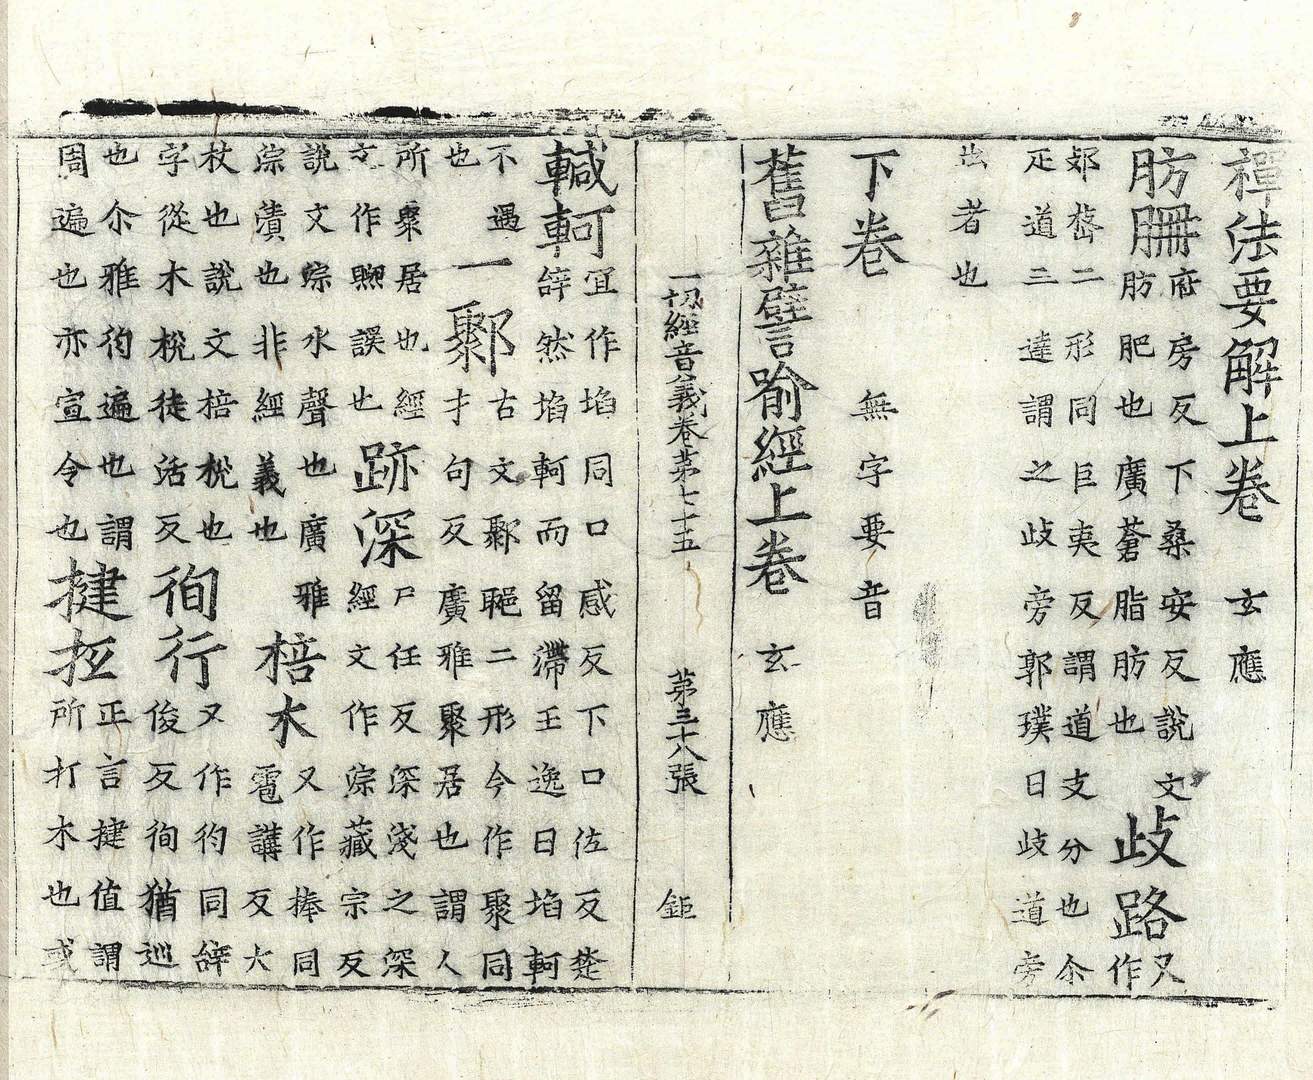 禪法要解上卷　玄應
肪𦙱府房反下桑安反說文肪肥也廣蒼脂肪也歧路又作
郊𡺸二形同巨夷反謂道支分也尒疋道二達謂之歧旁郭璞曰歧道旁
出者也
下卷　無字要音
舊雜譬喻經上卷　玄應
一切經音義卷第七十五　第三十八張　鉅
轗軻宜作埳同口感反下口佐反楚辝然埳軻而留滯王逸曰埳軻
不遇也一鄹古文鄹䎱二形今作聚同才句反廣雅聚居也謂人
所聚居也經文作㷠誤也跡深尸任反深淺之深經文作淙藏宗反
說文淙水聲也廣雅淙漬也非經義也棓木又作捧同雹講反大
杖也說文棓棁也字從木棁徒活反徇行又作彴同辝俊反徇猶巡
也尒雅彴遍也謂周遍也亦宣令也揵抵正言揵值謂所打木也或